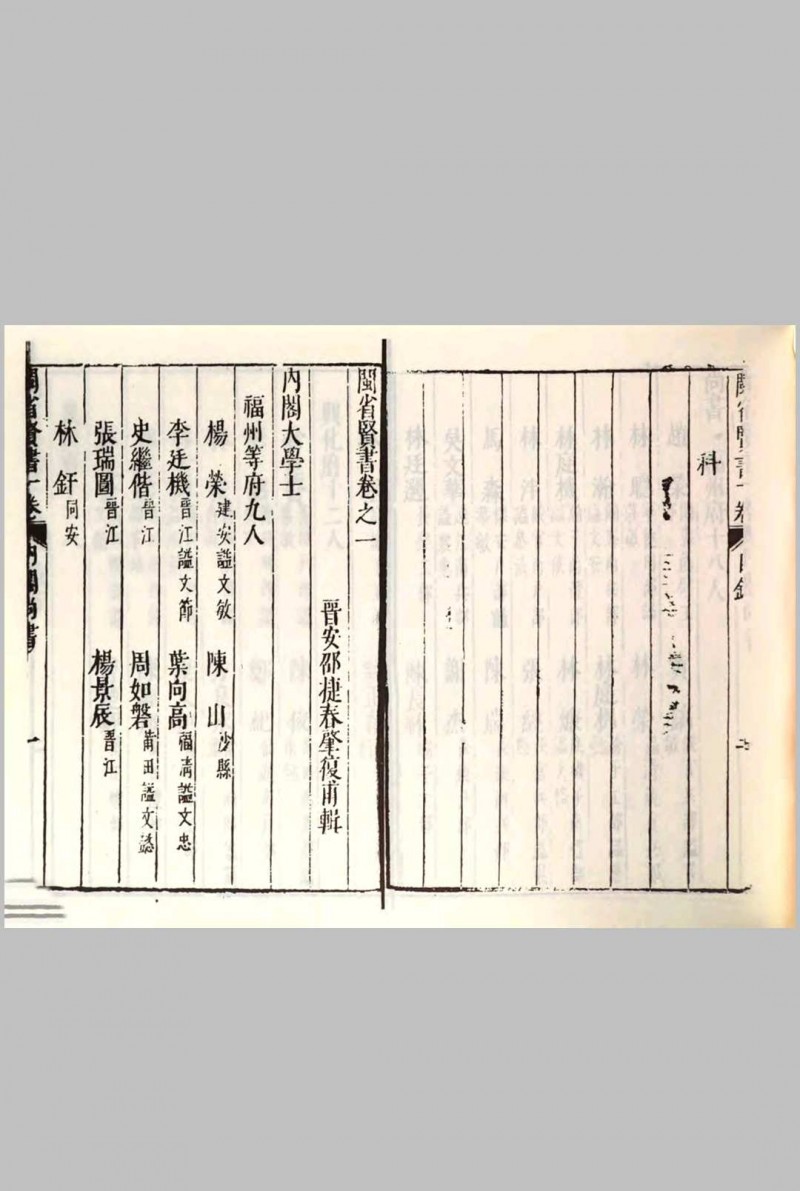 閩省賢書卷
目錄
科
閩省賢書卷之一
晉安邵捷春肇復甫輯
內閣大學士
福州等府九人
楊榮建安謚文敏 陳山沙縣
李廷機晉江謚文節 葉向高福清謚文忠
史繼偕晉江 周如磐莆田謚文懿
張瑞圖晉江 楊景辰晉江
林釬同安
閩省賢書卷 內閣尚書 一